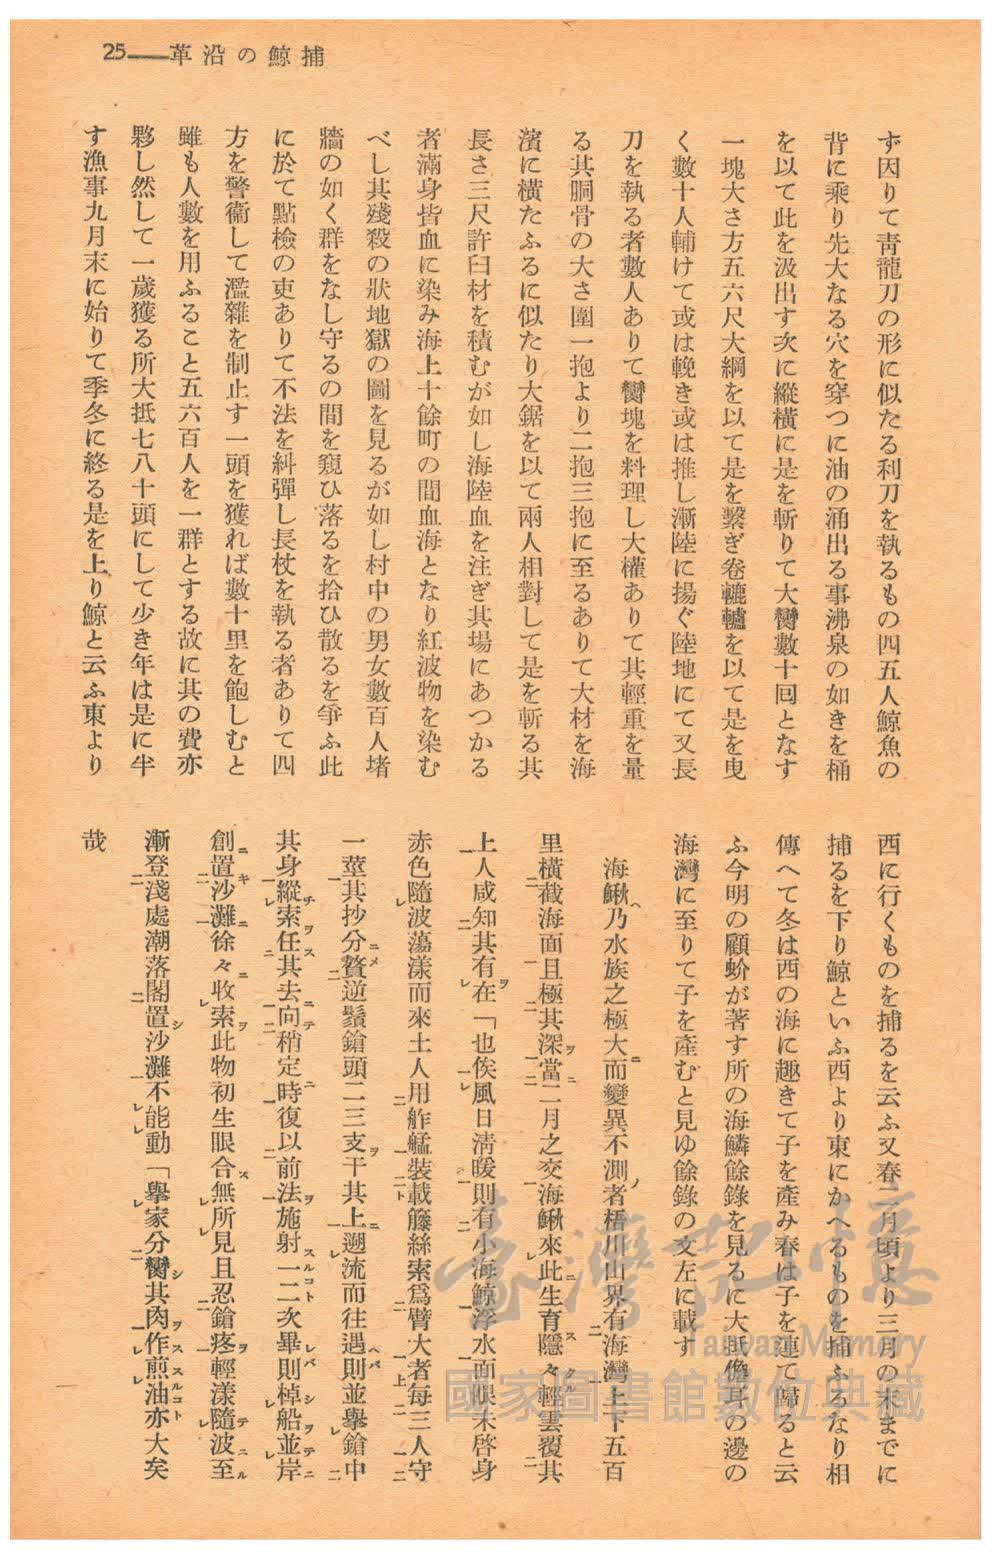 捕鯨の沿革——25
ず因りて靑龍刀の形に似たる利刀を執るもの四五人鯨魚の
背に乘り先大なる穴を穿つに油の涌出る事沸泉の如きを桶
を以て此を汲出す次に縱橫に是を斬りて大臠數十囘となす
一塊大さ方五六尺大綱を以て是を繫ぎ卷轆轤を以て是を曳
く數十人輔けて或は輓き或は推し漸陸に揚ぐ陸地にて又長
刀を執る者數人ありて臠塊を料理し大權ありて其輕重を量
る其胴骨の大さ圍一抱より二抱三抱に至るありて大材を海
濱に橫たふるに似たり大鋸を以て兩人相對して是を斬る其
長さ三尺許臼材を積むが如し海陸血を注ぎ其場にあつかる
者滿身皆血に染み海上十餘町の間血海となり紅波物を染む
べし其殘殺の狀地獄の圖を見るが如し村中の男女數百人堵
牆の如く群をなし守るの間を窺ひ落るを拾ひ散るを爭ふ此
に於て點檢の吏ありて不法を糾彈し長杖を執る者ありて四
方を警衞して濫雜を制止す一頭を獲れば數十里を飽しむと
雖も人數を用ふること五六百人を一群とする故に其の費亦
夥し然して一歲獲る所大抵七八十頭にして少き年は是に半
す漁事九月末に始りて季冬に終る是を上り鯨と云ふ東より
西に行くものを捕るを云ふ又春二月頃より三月の末までに
捕るを下り鯨といふ西より東にかへるものを捕ふるなり相
傳へて冬は西の海に趣きて子を產み春は子を連て歸ると云
ふ今明の顧蚧が著す所の海鱗餘錄を見るに大抵儋耳の邊の
海灣に至りて子を產むと見ゆ餘錄の文左に載す
海鰍乃水族之極大而變異不測者梧川山界有海灣上下五百
里橫截海面且極其深當二月之交海鰍來此生育隱々輕雲覆其
上人咸知其有在「也俟風日淸暖則有小海鯨浮水面眼未啓身
赤色隨波蕩漾而來土人用舴艋裝載籐絲索爲臂大者每三人守
一莖其抄分贅逆鬚鎗頭二三支干其上遡流而往遇則並擧鎗中
其身縱索任其去向稍定時復以前法施射一二次畢則棹船並岸
創置沙灘徐々收索此物初生眼合無所見且忍鎗疼輕漾隨波至
漸登淺處潮落閣置沙灘不能動「擧家分臠其肉作煎油亦大矣
哉
臺灣記憶
Taiwan Memory
國家圖書館數位典藏